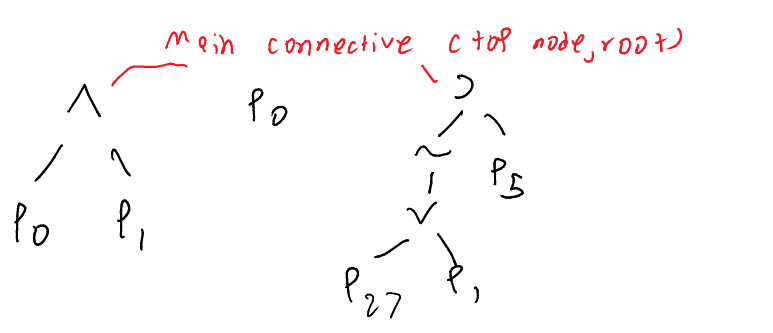 main connective (top node, root)
∧ P0 ⊃
~ P5
P0 P1 ∨
P27 P1